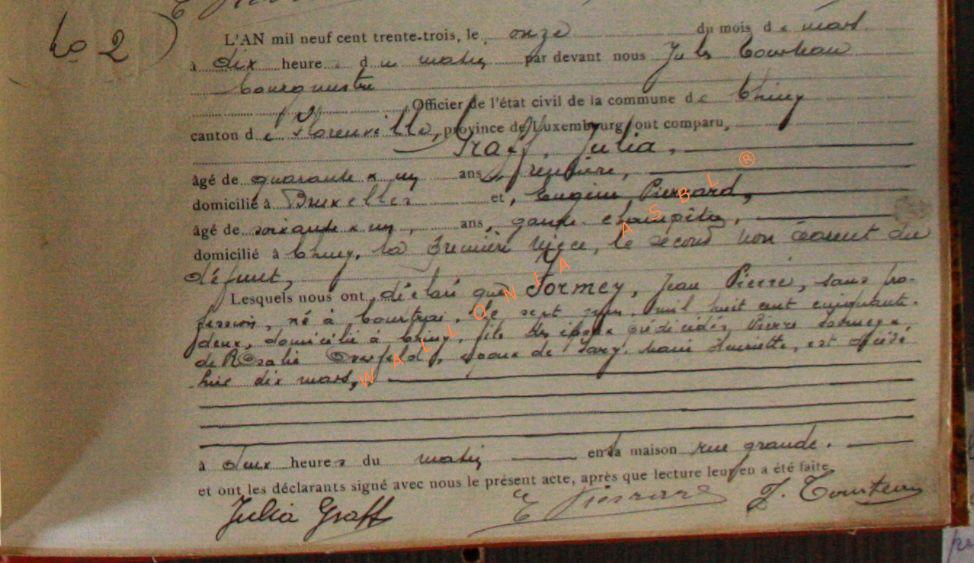 No 2
L'AN mil neuf cent trente-trois, le onze du mois de mars
à dix heures du matin par devant nous Jules
bourgmestre
Officier de l'état civil de la commune de Chiny
canton de Florenville, province de Luxembourg, ont comparu,
Graff, Julia,
âgé de quarante & un ans,
domicilié à Bruxelles et, Eugène Pierrard,
âgé de soixante & un, ans, garde champêtre,
domicilié à Chiny, la première nièce, le second non parent du
défunt,
Lesquels nous ont déclaré que Tormey, Jean Pierre, sans pro-
fession, né à Courtrai, le sept mil huit cent cinquante-
deux, domicilié à Chiny, fils des époux Pierre &
de Rosalie époux de Marie Henriette, est décédé
hier dix mars,
à deux heures du matin en sa maison rue grande.
et ont les déclarants signé avec nous le présent acte, après que lecture leur en a été faite.
Julia Graff E Pierrard J.
WALLONIA ASBL ®